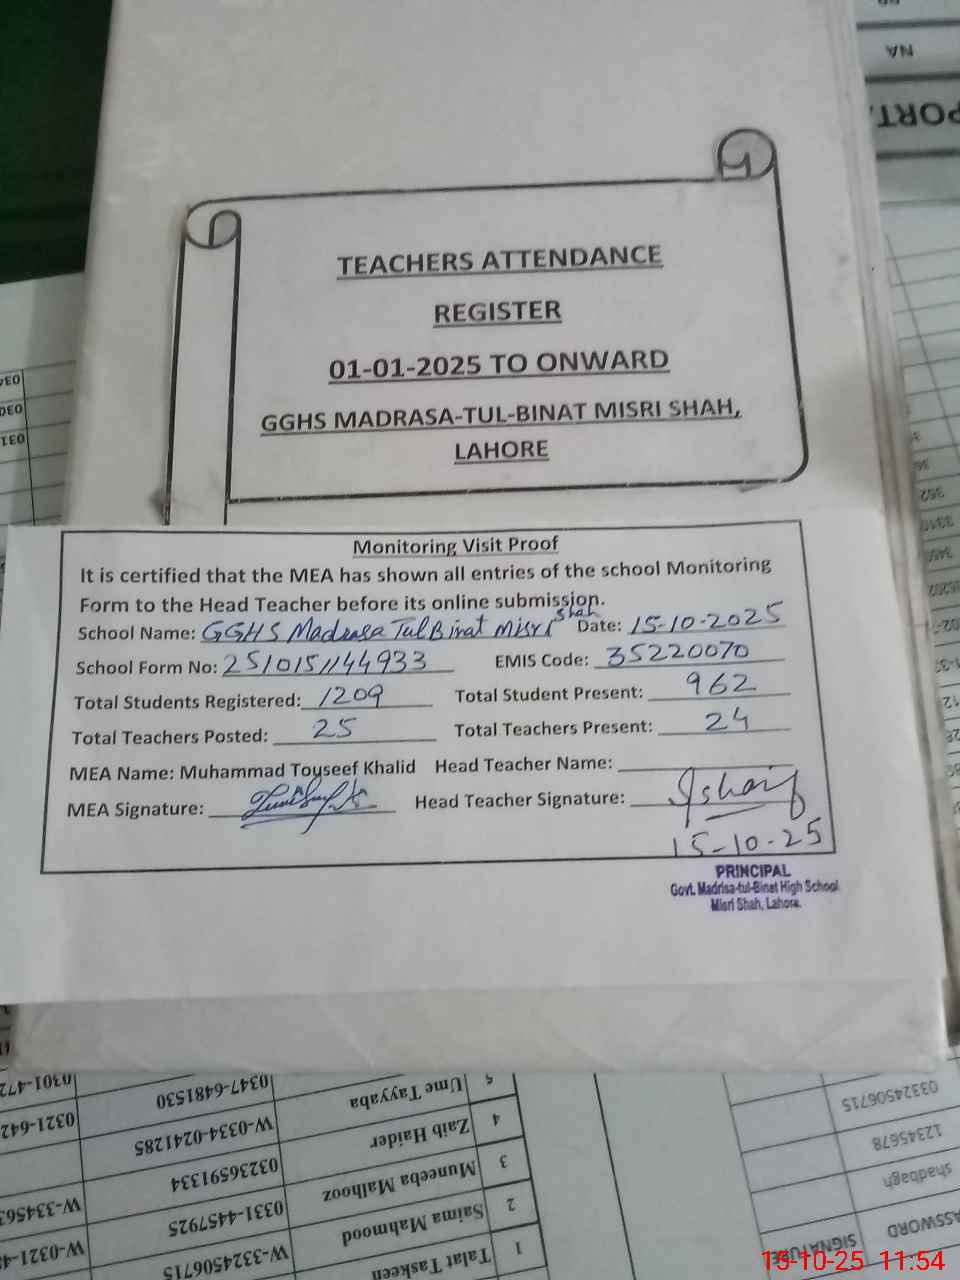 TEACHERS ATTENDANCE
REGISTER
01-01-2025 TO ONWARD
GGHS MADRASA-TUL-BINAT MISRI SHAH,
LAHORE
Monitoring Visit Proof
It is certified that the MEA has shown all entries of the school Monitoring
Form to the Head Teacher before its online submission.
School Name: GGHS Madrasa Tul Binat Misri Shah Date: 15-10-2025
School Form No: 2510151144933 EMIS Code: 35220070
Total Students Registered: 1209 Total Student Present: 962
Total Teachers Posted: 25 Total Teachers Present: 24
MEA Name: Muhammad Touseef Khalid Head Teacher Name:
MEA Signature: Head Teacher Signature:
15-10-25
PRINCIPAL
Govt. Madrisa-tul-Binat High School
Misri Shah, Lahore.
NA
PORT
1 Talat Taskeen W-3324506715
2 Saima Mahmood 0331-4457925 W-0321-4
3 Muneeba Malhooz 03236591334 W-334563
4 Zaib Haider W-0334-0241285 0321-642
5 Ume Tayyaba 0347-6481530 0301-472
03324506715
12345678
shadbagh
PASSWORD
SIGNATURE
15-10-25 11:54